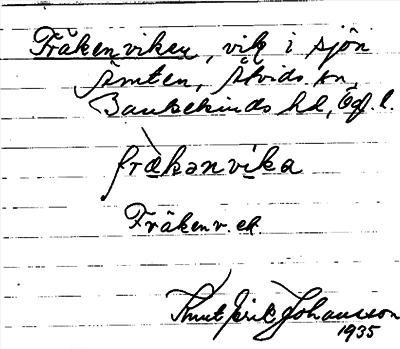 Fräkenviken, vik i sjön
Ämten, Åtvids sn,
Bankekinds hd, Ögl.
frækanvika
Fräkenv. ek
Knut Erik Johansson
1935